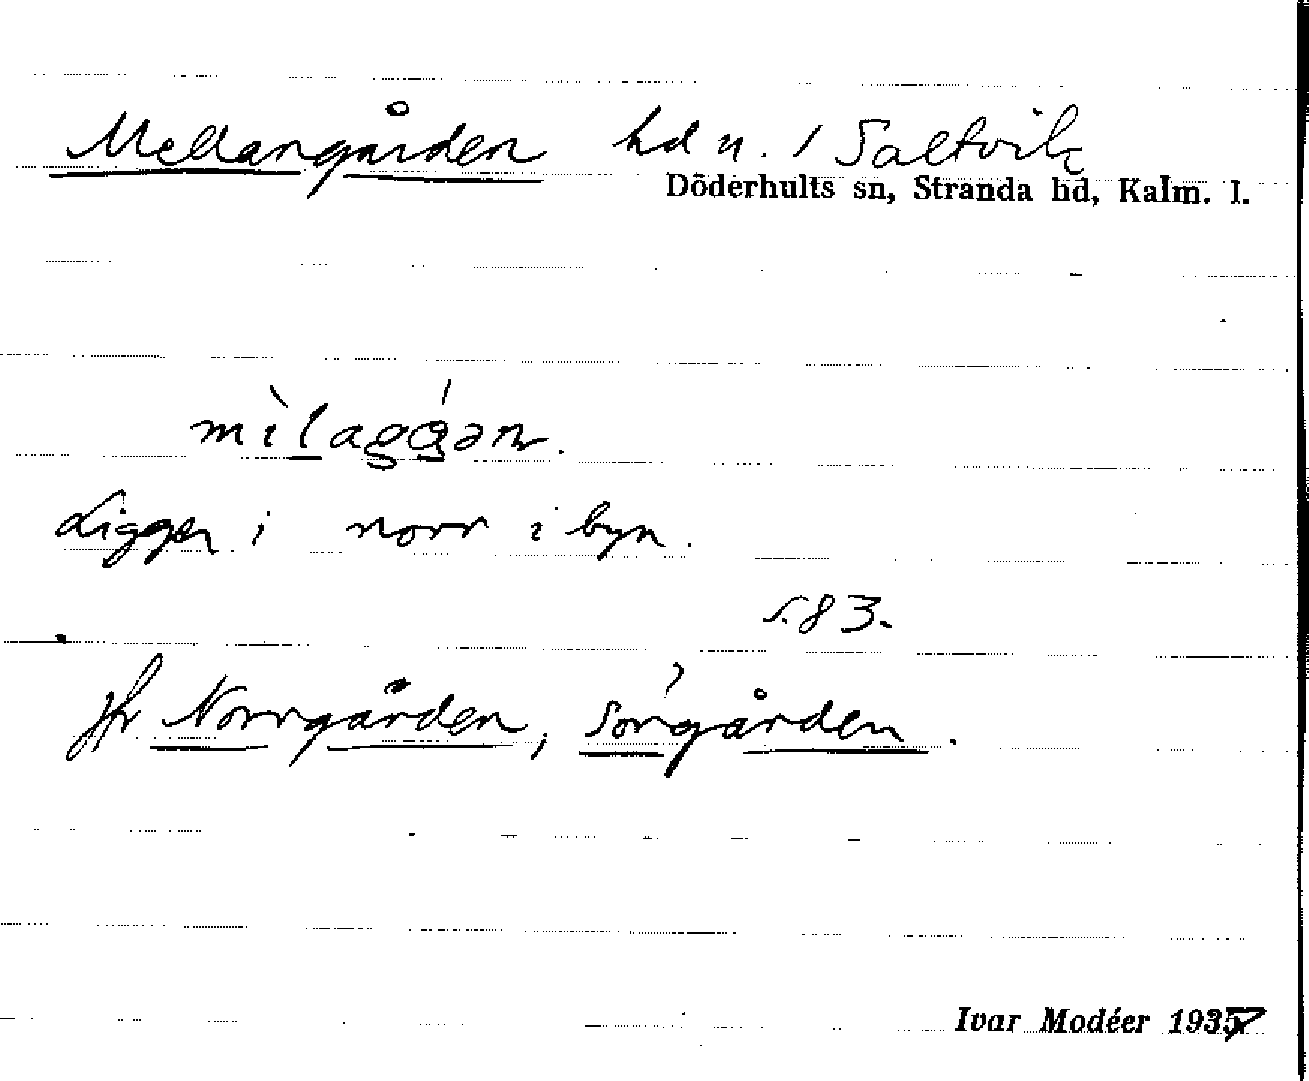 Mellangården hd n. 1 Saltvik
Döderhults sn, Stranda hd, Kalm. l.
mìlagɡ́ən.
Ligger i norr i byn.
s. 83.
jfr Norrgården, Sörgården.
Ivar Modéer 1937